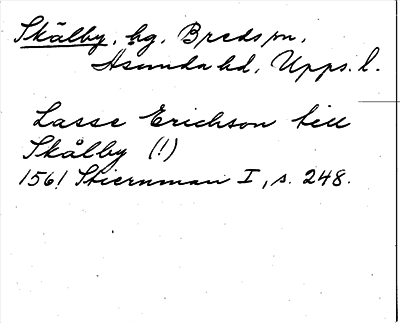 Skälby, hg, Breds sn,
Åsunda hd, Upps. l.
Lasse Erichson till
Skålby (!)
1561 Stiernman I, s. 248.